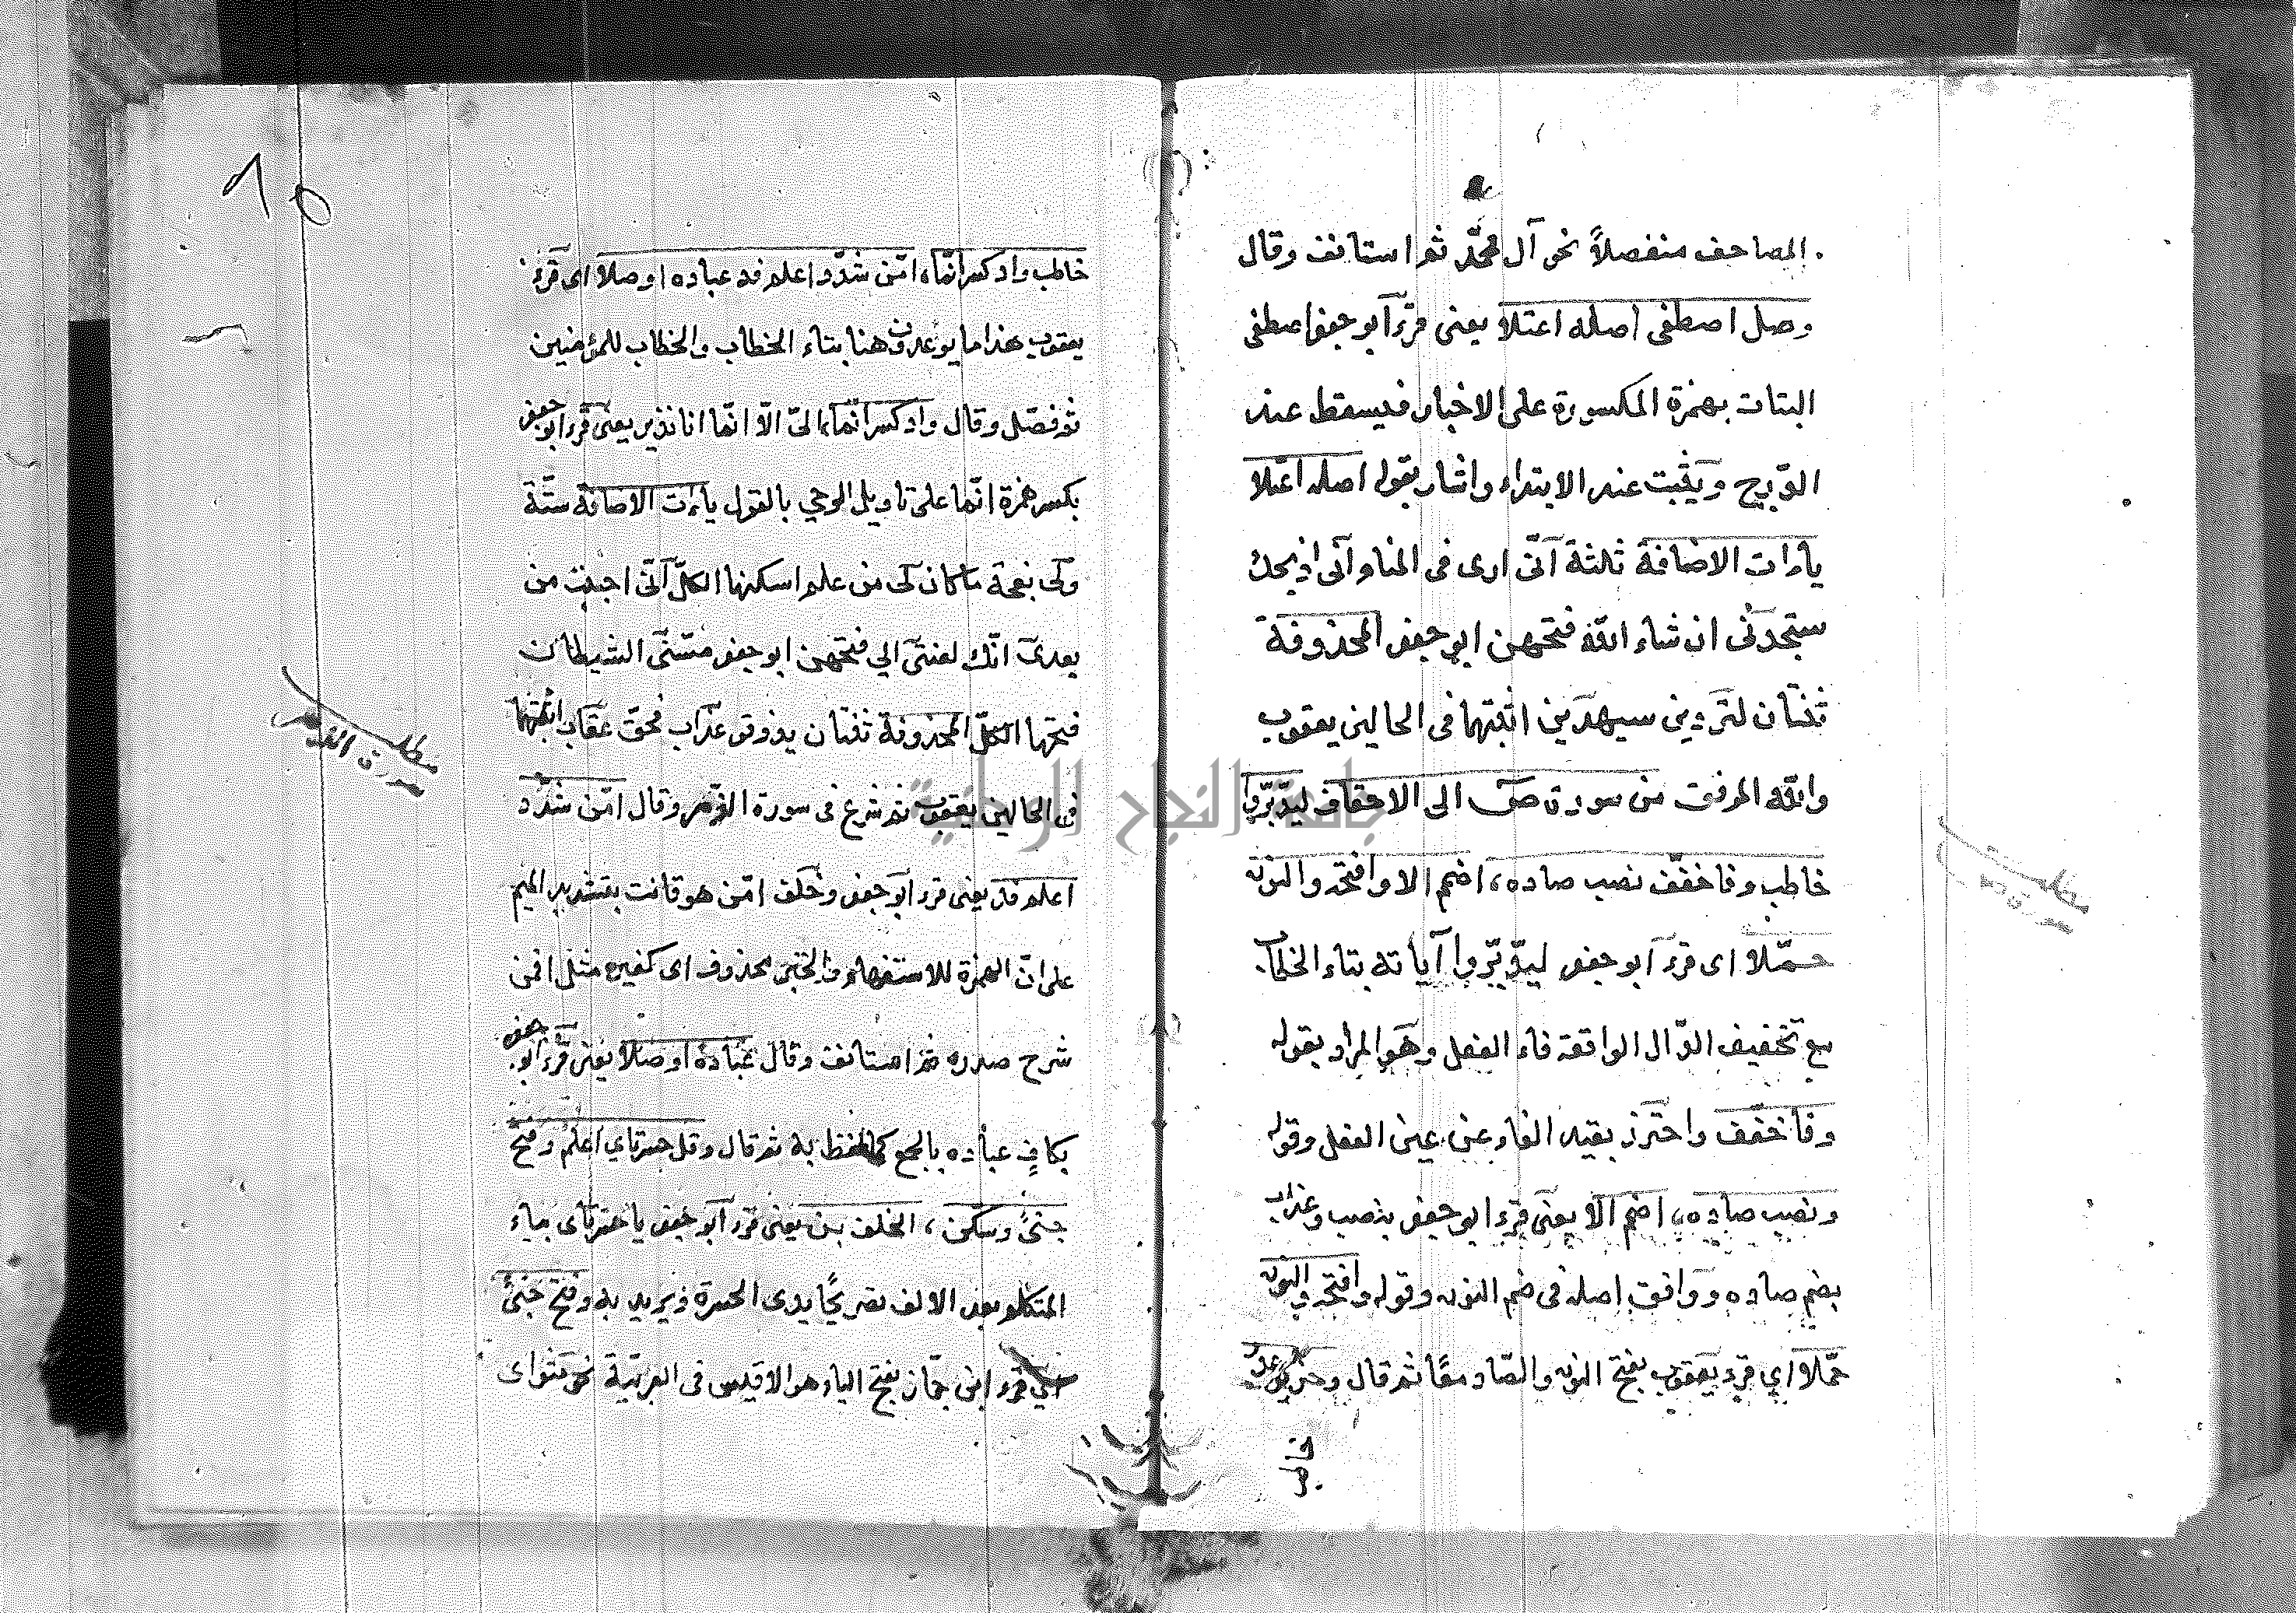 المصاحف منفصلاً نحو آل محمّد ثم استانف وقال
وصل اصطفى اصله اعتلا يعنى قرء ابو جعفر اصطفى
البنات بهمزة المكسورة على الاخبار فيسقط عند
الدّرج ويثبت عند الابتداء واشار بقوله اصله اعتلا
ياءات الاضافة ثلثة انّى ارى فى المنام انّى اذبحك
ستجدنى ان شاء الله فتحهن ابو جعفر المحذوفة
ثنتان لتردين سيهدين اثبتهما فى الحالين يعقوب
والله الموفق من سورة ص الى الاحقاف ليدّبّروا
خاطب وفا خفّف نصب صاده، اضمم الا وافتحه والنون
حمّلا اى قرء ابو جعفر ليدّبّروا آياته بتاء الخطاب
مع تخفيف الدّال الواقعة فاء الفعل وهو المراد بقوله
وفا خفّف واحترز بقيد الفاء عن عين الفعل وقوله
ونصب صاده، اضمم الا يعنى قرء ابو جعفر بنصب وعذاب
بضم صاده ووافق اصله فى ضم النون وقوله وافتحه والنون
حمّلا اي قرء يعقوب بفتح النون والصّاد معًا ثم قال
خاطب
١٥
خاطب واد كسر انّما، امّن شدّد اعلم فد عباده اوصلا اى قرء
يعقوب هذا ما يوعدون هنا بتاء الخطاب والخطاب للمؤمنين
ثم فصّل وقال واد كسر انّما، الىّ الّا انّما انا نذير يعنى قرء ابو جعفر
بكسر همزة انّما على تاويل الوحي بالقول ياءات الاضافة ستّة
ولى نعجة ما كان لى من علم اسكنها الكلّ انّى احببت من
بعدى انّك لعنتى الي فتحهن ابو جعفر مسّنى الشيطان
فتحها الكلّ المحذوفة ثنتان يذوقو عذاب فحقّ عقاب اثبتهما
فى الحالين يعقوب ثم شرع فى سورة الزّمر وقال امّن شدّد
اعلم فد يعنى قرء ابو جعفر وخلف امّن هو قانت بتشديد الميم
على انّ الهمزة للاستفهام والخبر محذوف اى كغيره مثل افمن
شرح صدره ثم استانف وقال عباده اوصلا يعنى قرء ابو جعفر
بكافٍ عباده بالجمع كما لفظ به ثم قال وقل حسرتاي اعلم وفتح
جنىً وسكّن، الخلف بن يعنى قرء ابو جعفر يا حسرتاى بياء
المتكلم بعد الالف تصريحًا يدى الحسرة ويريد به وفتح جنىً
اي قرء ابن جمّاز بفتح الياء هو الاقيس فى العربيّة نحو مثواى
مطلب
سورة الزمر
مطلب
سورة ص
جامعة النجاح الوطنية